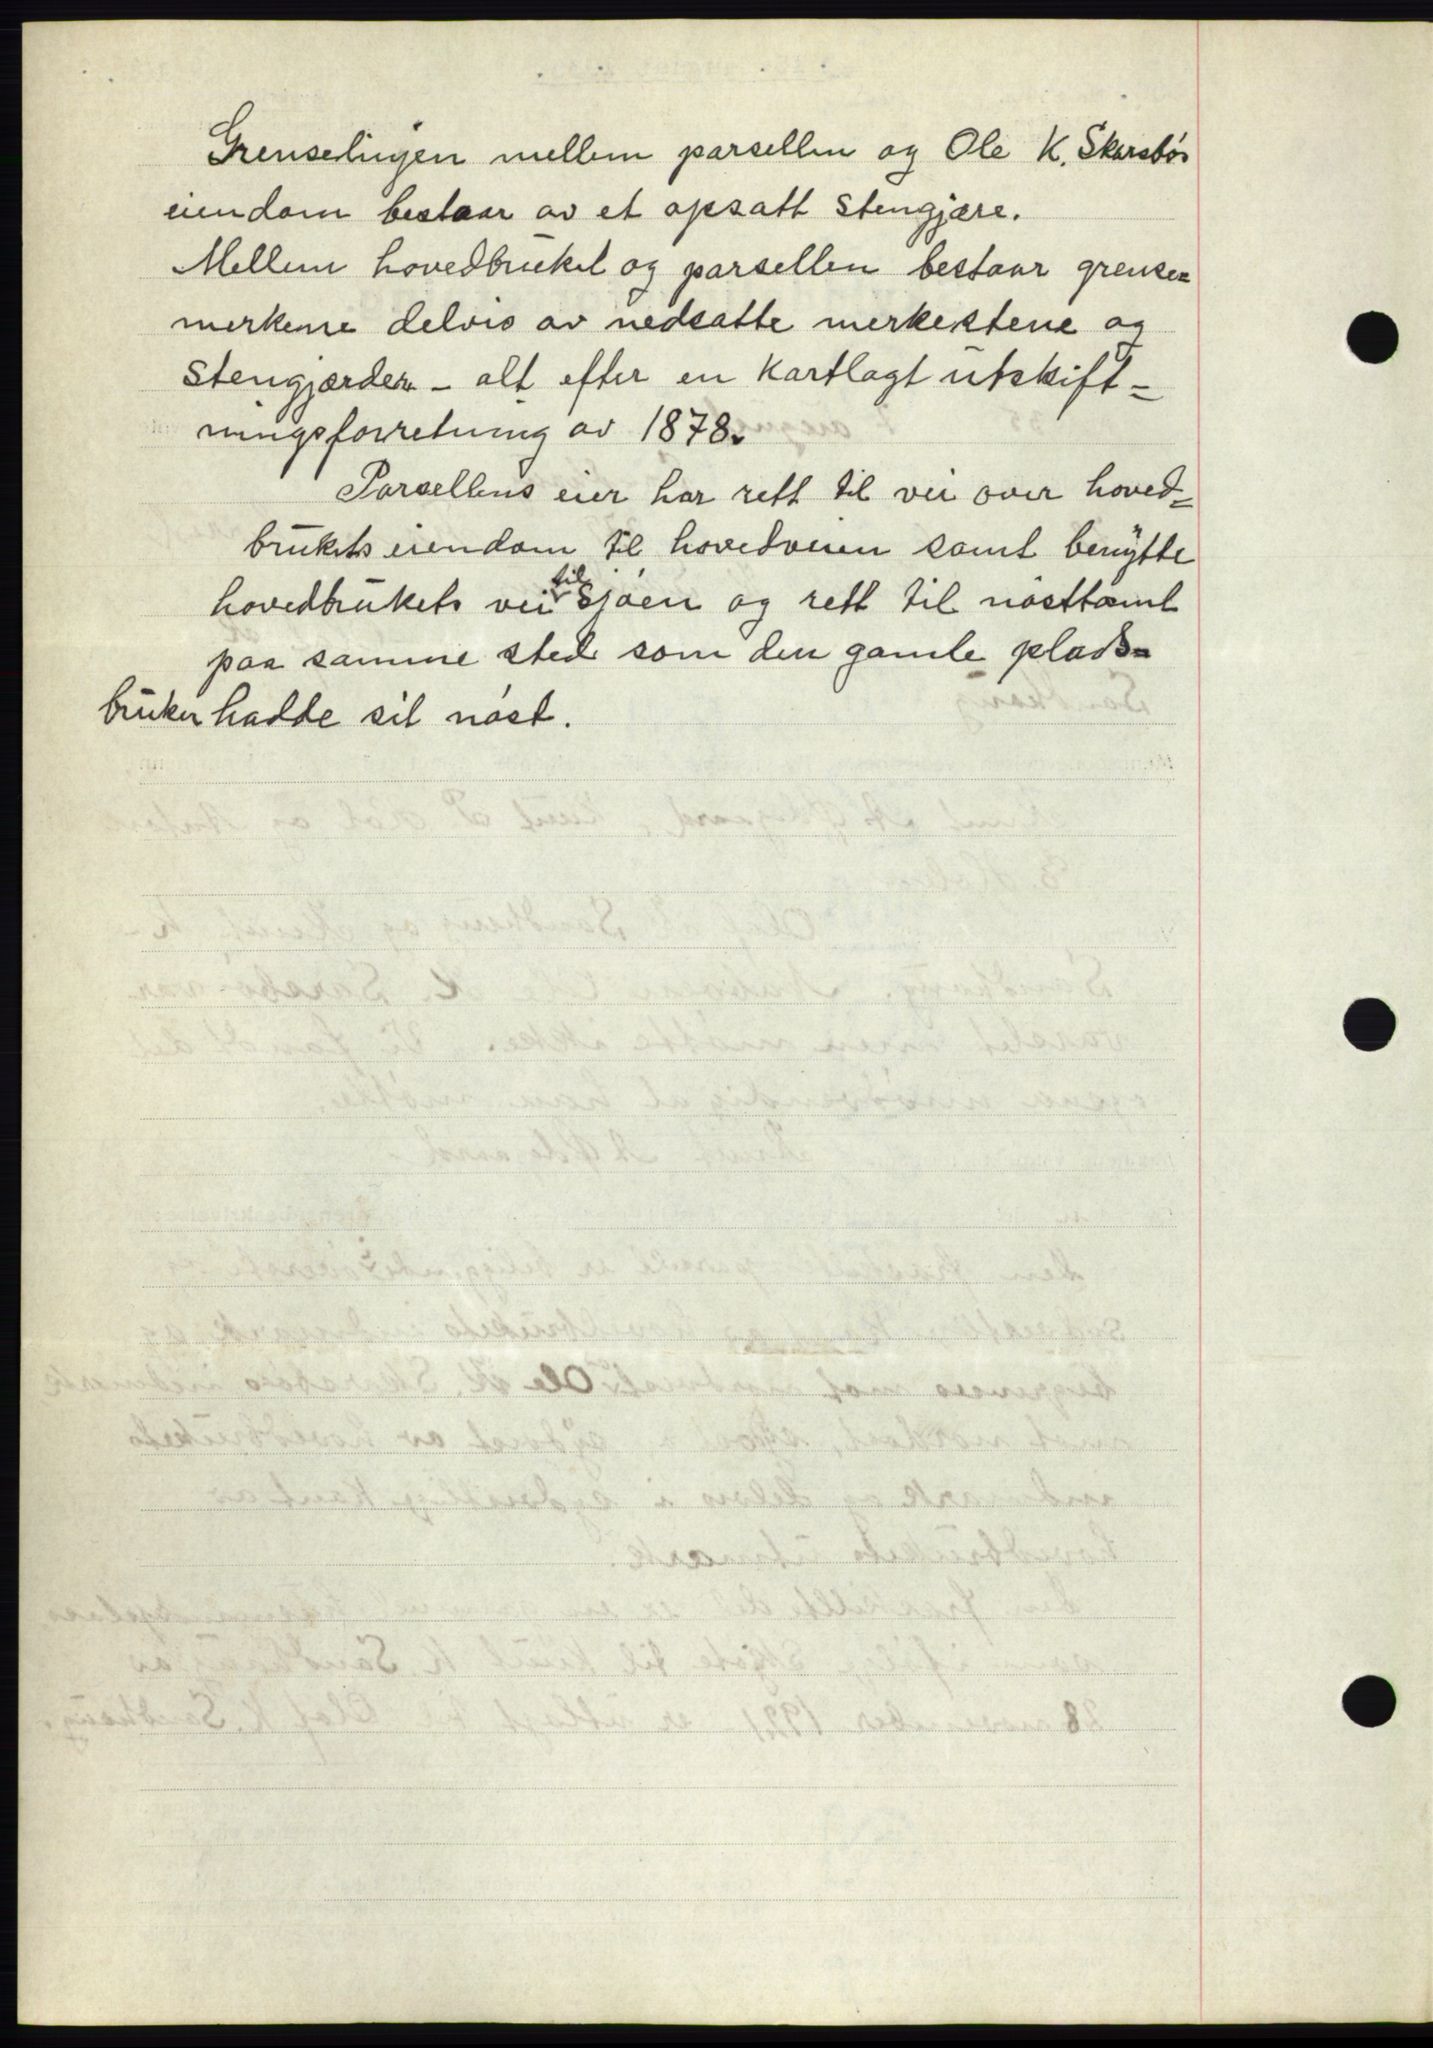 Grenselinjen mellem parsellen og Ole K. Skarsbös
eiendom bestaar av et opsatt stengjære.
Mellem hovedbruket og parsellen bestaar grense=
merkene delvis av nedsatte merkestene og
stengjærder – alt efter en kartlagt utskift=
ningsforretning av 1878.
Parsellens eier har rett til vei over hoved=
brukets eiendom til hovedveien samt benytte
hovedbrukets vei til sjöen og rett til nösttomt
paa samme sted som den gamle plads=
bruker hadde sit nöst.